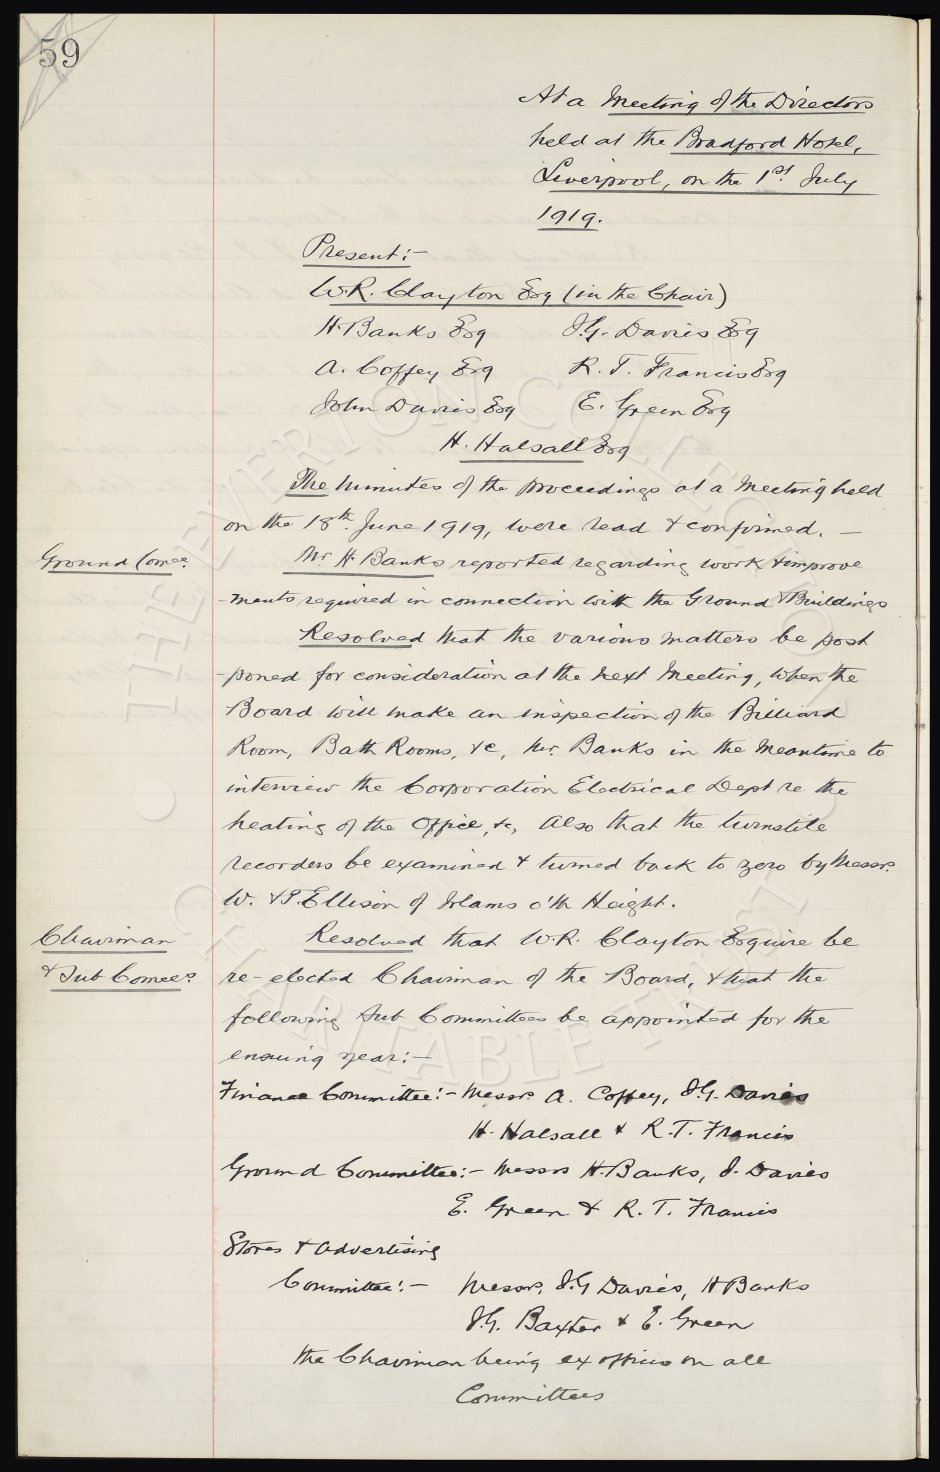 59
At a Meeting of the Directors
held at the Bradford Hotel,
Liverpool, on the 1st July
1919.
Present:-
W.R. Clayton Esq (in the Chair)
H. Banks Esq J.G. Davies Esq
A. Coffey Esq R.T. Francis Esq
John Davies Esq E. Green Esq
H. Halsall Esq
The Minutes of the proceedings at a Meeting held
on the 18th June 1919, were read & confirmed. -
Ground Comee. Mr H. Banks reported regarding work & improve
-ments required in connection with the Ground & Buildings
Resolved that the various matters be post
-poned for consideration at the next Meeting, when the
Board will make an inspection of the Billiard
Room, Bath Rooms, &c, Mr. Banks in the meantime to
interview the Corporation Electrical Dept re the
heating of the Office, &c, Also that the turnstile
recorders be examined & turned back to zero by Messrs.
W. & T. Ellison of Irlams o'th Height.
Chairman Resolved that W.R. Clayton Esquire be
& Sub Comees. re-elected Chairman of the Board, & that the
following Sub Committees be appointed for the
ensuing year:-
Finance Committee:- Messrs. A. Coffey, J.G. Davies
H. Halsall & R.T. Francis
Ground Committee:- Messrs H. Banks, J. Davies
E. Green & R.T. Francis
Stores & Advertising
Committee:- Messrs. J.G Davies, H Banks
J.G. Baxter & E. Green
the Chairman being ex officio on all
Committees
THE EVERTON COLLECTION
CHARITABLE TRUST